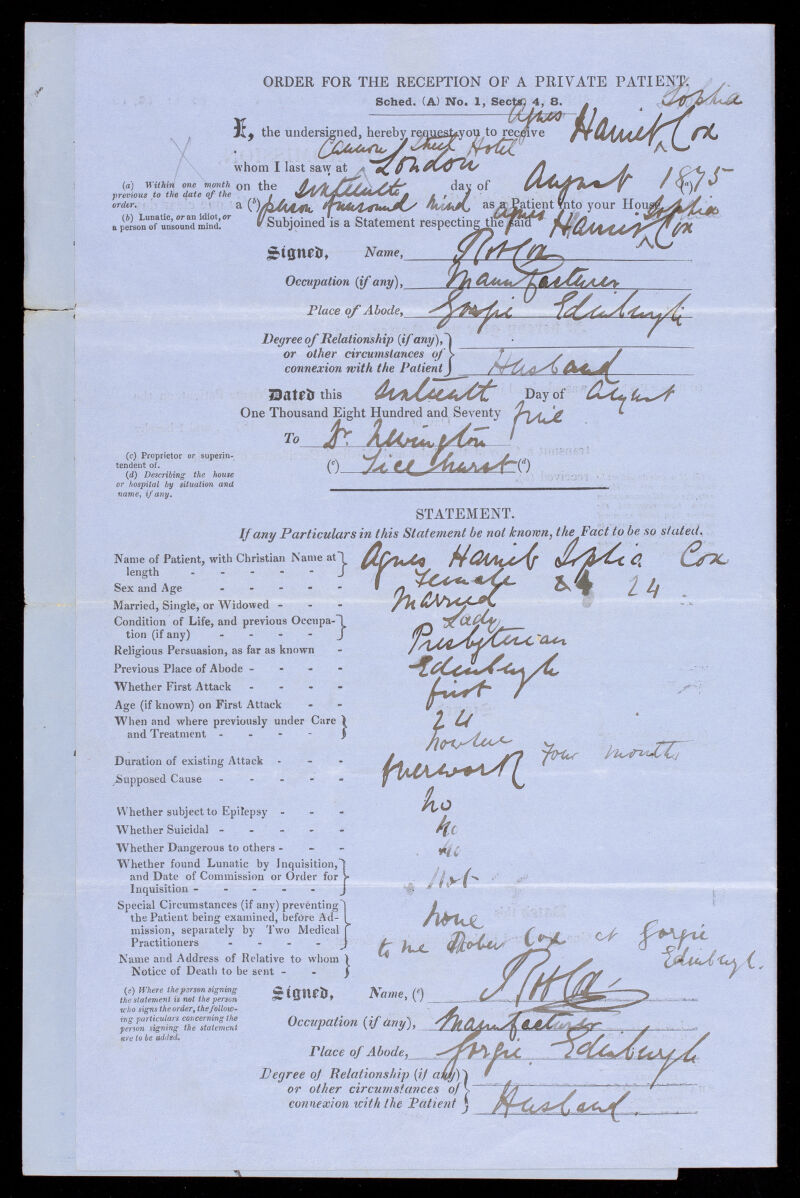 ORDER FOR THE RECEPTION OF A PRIVATE PATIENT.
Sched. (A) No. 1, Sects. 4, 8.
Agnes Sophia
I, the undersigned, hereby request you to receive Harriet Cox
Cannon Street Hotel
whom I last saw at London
(a) Within one month previous to the date of the order.
on the sixteenth day of August 1875 (a)
(b) Lunatic, or an idiot, or a person of unsound mind.
a (b) person of unsound mind as a Patient into your House.
Agnes Sophia
Subjoined is a Statement respecting the said Harriet Cox
Signed, Name, Robt Cox
Occupation (if any), Manufacturer
Place of Abode, Gorgie Edinburgh
Degree of Relationship (if any),
or other circumstances of
connexion with the Patient Husband
Dated this sixteenth Day of August
One Thousand Eight Hundred and Seventy five
To Dr. Newington
(c) Ticehurst (d)
(c) Proprietor or superintendent of.
(d) Describing the house or hospital by situation and name, if any.
STATEMENT.
If any Particulars in this Statement be not known, the Fact to be so stated.
Name of Patient, with Christian Name at length - - - - - Agnes Harriet Sophia Cox
Sex and Age - - - - - Female 24 24
Married, Single, or Widowed - - - Married
Condition of Life, and previous Occupation (if any) - - - - - Lady
Religious Persuasion, as far as known - Presbyterian
Previous Place of Abode - - - - Edinburgh
Whether First Attack - - - - first
Age (if known) on First Attack - - 24
When and where previously under Care and Treatment - - - - nowhere
Duration of existing Attack - - - Four months
Supposed Cause - - - - - Overwork
Whether subject to Epilepsy - - - no
Whether Suicidal - - - - - no
Whether Dangerous to others - - - no
Whether found Lunatic by Inquisition, and Date of Commission or Order for Inquisition - - - - - Not
Special Circumstances (if any) preventing the Patient being examined, before Admission, separately by Two Medical Practitioners - - - - none
Name and Address of Relative to whom Notice of Death to be sent - - to me Robert Cox at Gorgie
Edinburgh.
(e) Where the person signing the statement is not the person who signs the order, the following particulars concerning the person signing the statement are to be added.
Signed, Name, (e) Robt Cox
Occupation (if any), Manufacturer
Place of Abode, Gorgie Edinburgh
Degree of Relationship (if any)
or other circumstances of
connexion with the Patient Husband.